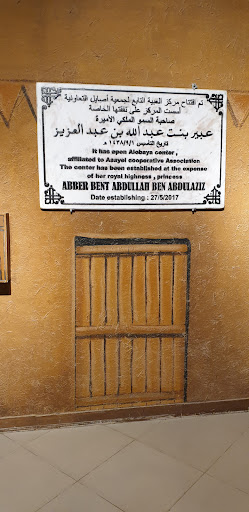 تم افتتاح مركز العيية التابع لجمعية أصايل التعاونية
أسست المركز على نفقتها الخاصة
صاحبة السمو الملكي الأميرة
عبير بنت عبد الله بن عبد العزيز
تاريخ التأسيس ١٤٣٨/٩/١ هـ
It has open Alobaya center ,
affiliated to Azayel cooperative Association
The center has been established at the expense
of her royal highness , princess
ABBER BENT ABDULLAH BEN ABDULAZIZ
Date establishing : 27/5/2017